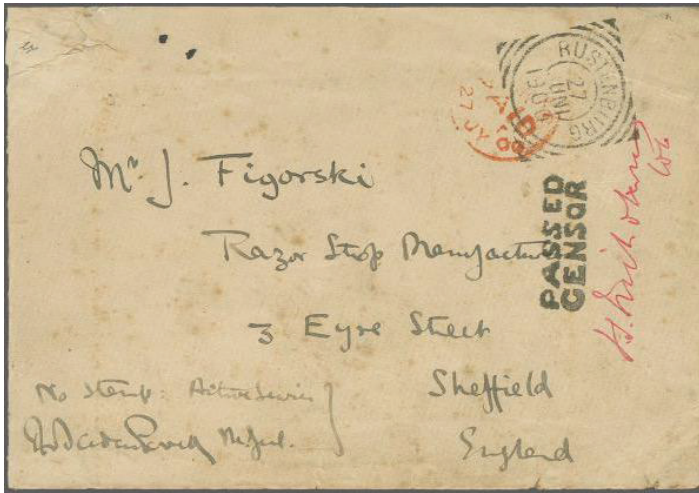 RUSTENBURG
27 JUNI
1901
PASSED
CENSOR
Mr J. Figorski
Razor Strop Manufacturer
3 Eyre Street
Sheffield
England
No Stamp: Active Service